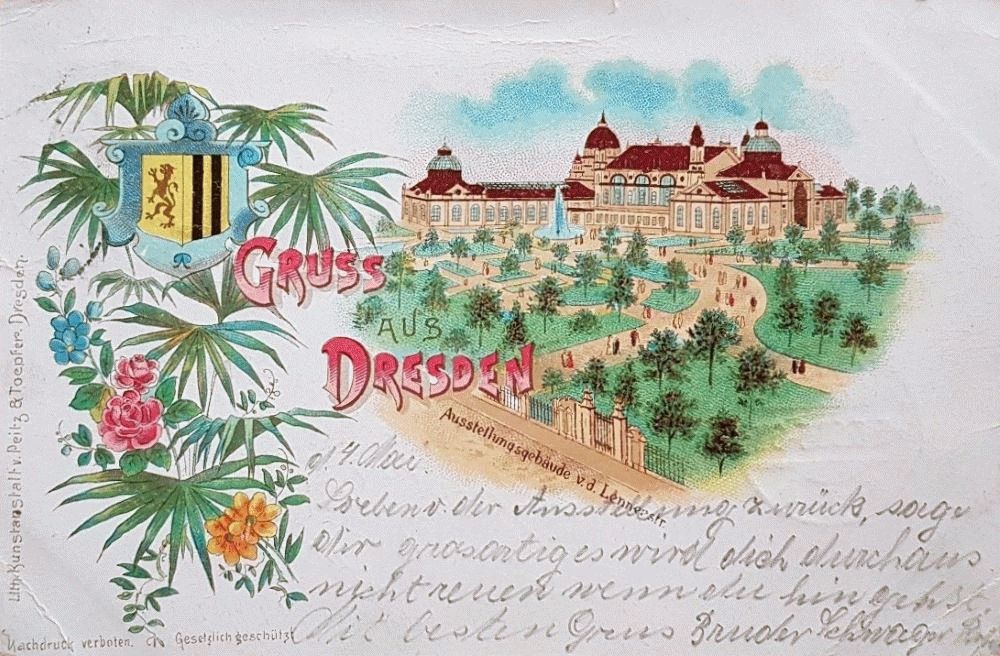 GRUSS
AUS
DRESDEN
Ausstellungsgebäude v.d. Lennéestr.
d. 4 Mai.
Soeben v. der Ausstellung zurück, sage
dir grosartiges wird dich durchaus
nicht reuen wenn du hin gehst.
Mit besten Grus Bruder Schwager
Lith. Kunstanstalt v. Peitz & Toepfer, Dresden.
Nachdruck verboten. Gesetzlich geschützt